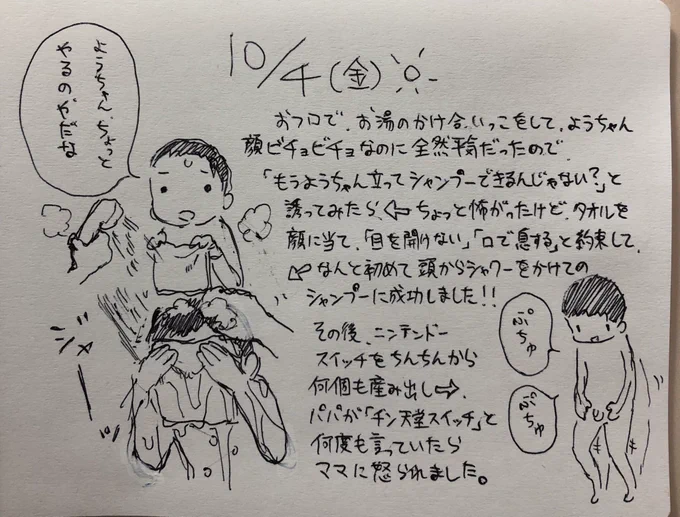 10/4(金)
ようちゃん、ちょっと
やるのやだな
おフロで、お湯のかけ合いっこをして、ようちゃん
顔ビチョビチョなのに全然平気だったので、
「もうようちゃん立ってシャンプーできるんじゃない?」と
誘ってみたら、⇦ちょっと怖がったけど、タオルを
顔に当て、「目を開けない」「口で息する」と約束して、
⇙なんと初めて頭からシャワーをかけての
シャンプーに成功しました!!
その後、ニンテンドー
スイッチをちんちんから
何個も産み出し⇨、
パパが「チン天堂スイッチ」と
何度も言っていたら
ママに怒られました。
ジャー
ぷちゅ
ぷちゅ